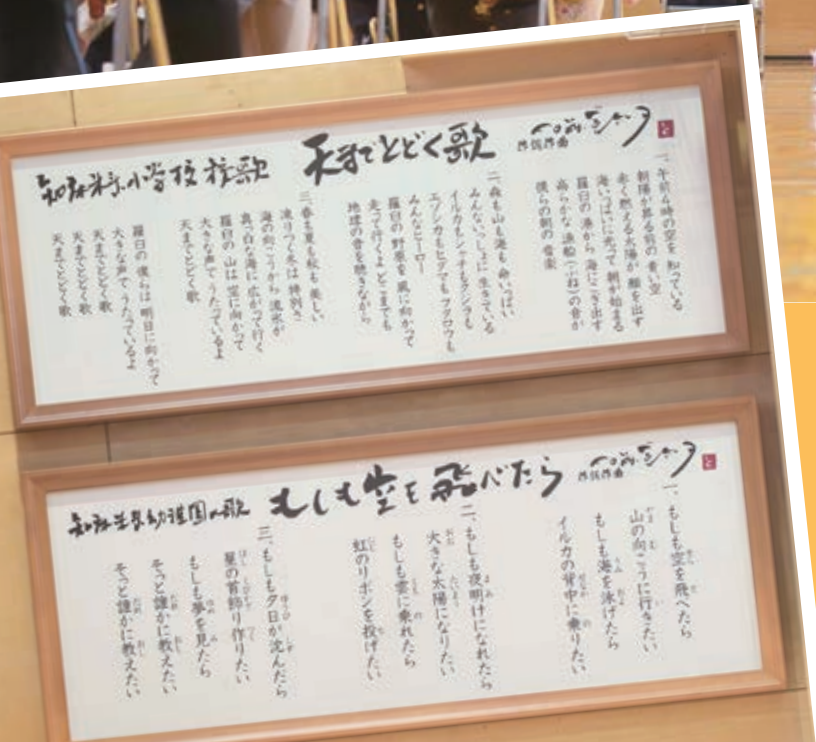 知床未来小学校 校歌 天までとどく歌 作詞作曲
一、午前4時の空を知っている
朝陽が昇る前の青い空
赤く燃える太陽が 顔を出す
海いっぱいに光って 朝が始まる
羅臼の港から 海にこぎ出す
高らかな 漁船(ふね)の音が
僕らの朝の音楽
二、森も山も海も命いっぱい
みんないっしょに生きている
イルカもシャチもクジラも
エゾシカもヒグマもフクロウも
みんなヒーロー
羅臼の野原を風に向かって
走って行くよどこまでも
地球の音を聴きながら
三、春も夏も秋も美しい
凍りつく冬は特別さ
海の向こうから 流氷が
真っ白な海に広がって行く
羅臼の山は空に向かって
大きな声で うたっているよ
天までとどく歌
羅臼の僕らは明日に向かって
大きな声で うたっているよ
天までとどく歌
天までとどく歌
天までとどく歌
幼稚園の歌 もしも空を飛べたら 作詞作曲
一、もしも空を飛べたら
山の向こうに行きたい
もしも海を泳げたら
イルカの背中に乗りたい
二、もしも夜明けになれたら
大きな太陽になりたい
もしも雲に乗れたら
虹のリボンを投げたい
三、もしも夕日が沈んだら
星の首飾り作りたい
もしも夢を見たら
そっと誰かに教えたい
そっと誰かに教えたい